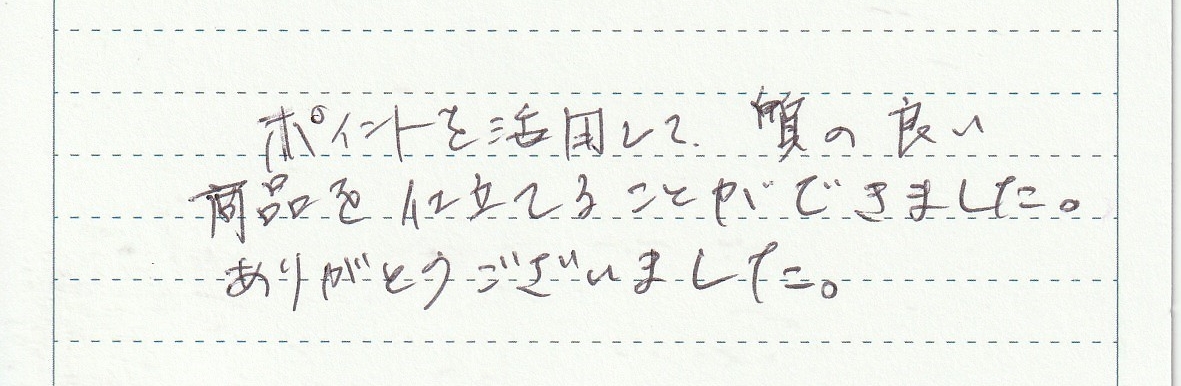 ポイントを活用して、質の良い
商品を仕立てることができました。
ありがとうございました。